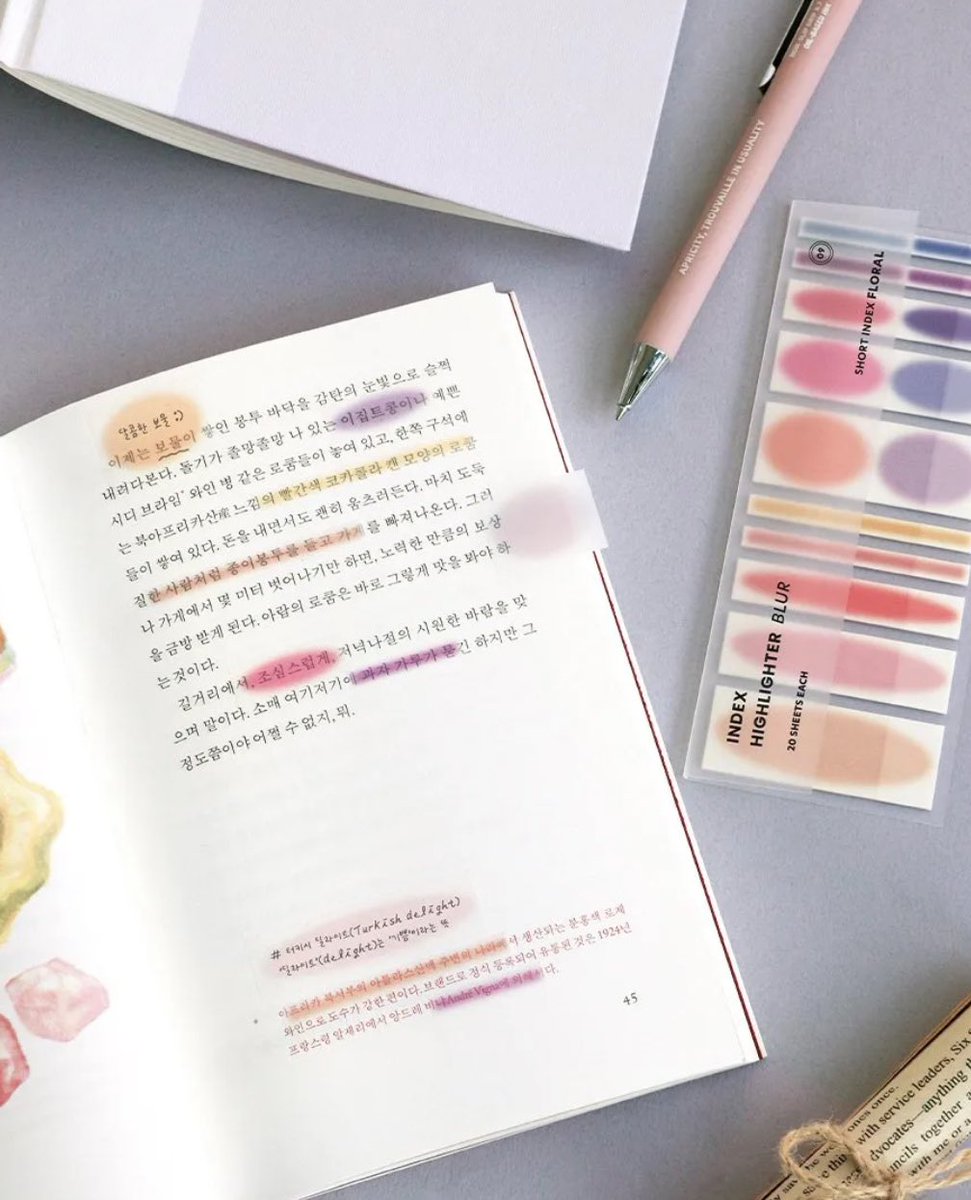 OIL-BASED INK
APRICITY, TROUVAILLE IN USUALITY
09
SHORT INDEX FLORAL
INDEX
HIGHLIGHTER BLUR
20 SHEETS EACH
달콤한 보물 :)
이제는 보물이 쌓인 봉투 바닥을 감탄의 눈빛으로 슬쩍
내려다본다. 돌기가 졸망졸망 나 있는 이집트콩이나 예쁜
시디 브라임* 와인 병 같은 로쿰들이 놓여 있고, 한쪽 구석에
는 북아프리카산産 느낌의 빨간색 코카콜라 캔 모양의 로쿰
들이 쌓여 있다. 돈을 내면서도 괜히 움츠러든다. 마치 도둑
질한 사람처럼 종이봉투를 들고 가게를 빠져나온다. 그러
나 가게에서 몇 미터 벗어나기만 하면, 노력한 만큼의 보상
을 금방 받게 된다. 아랍의 로쿰은 바로 그렇게 맛을 봐야 하
는 것이다.
길거리에서, 조심스럽게, 저녁나절의 시원한 바람을 맞
으며 말이다. 소매 여기저기에 과자 가루가 묻긴 하지만 그
정도쯤이야 어쩔 수 없지, 뭐.
# 터키시 딜라이트(Turkish delight)
'딜라이트'(delight)는 '기쁨'이라는 뜻
아프리카 북서부의 아틀라스산맥 주변의 나라에서 생산되는 분홍색 로제
와인으로 도수가 강한 편이다. 브랜드로 정식 등록되어 유통된 것은 1924년
프랑스령 알제리에서 앙드레 비냐André Vigna에 의해서다.
45
ones once.
with service leaders, Six
dvocates—anything
uncils together
with me or a